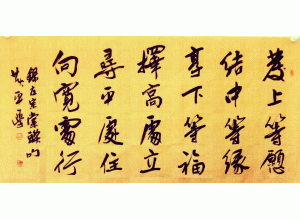 發上等願
結中等緣
享下等福
擇高處立
尋平處住
向寬處行
錄左宗棠聯句